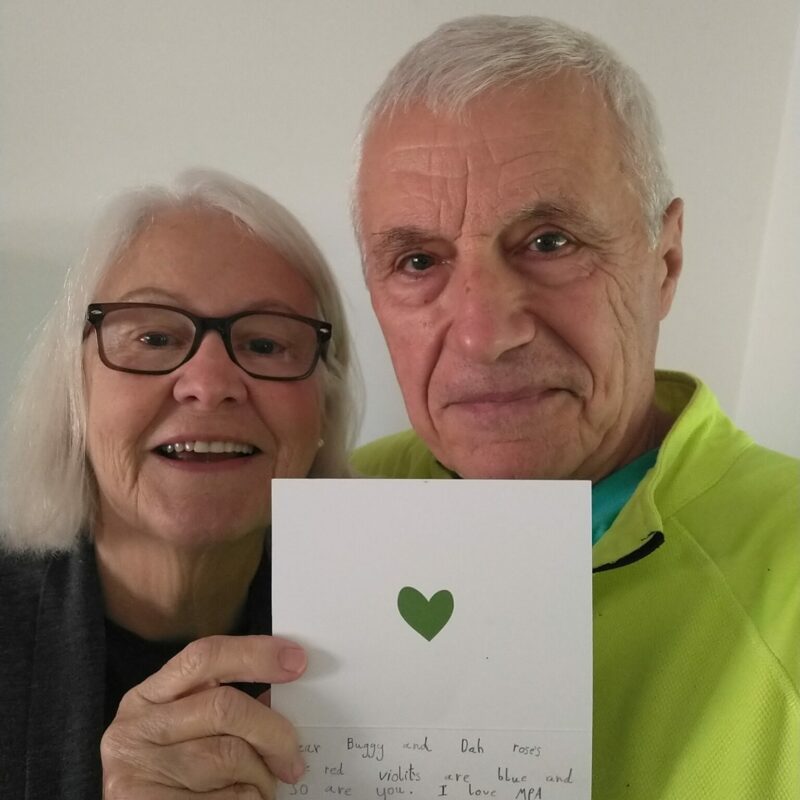 Buggy and Dah roses
red violits are blue and
so are you. I love MPA